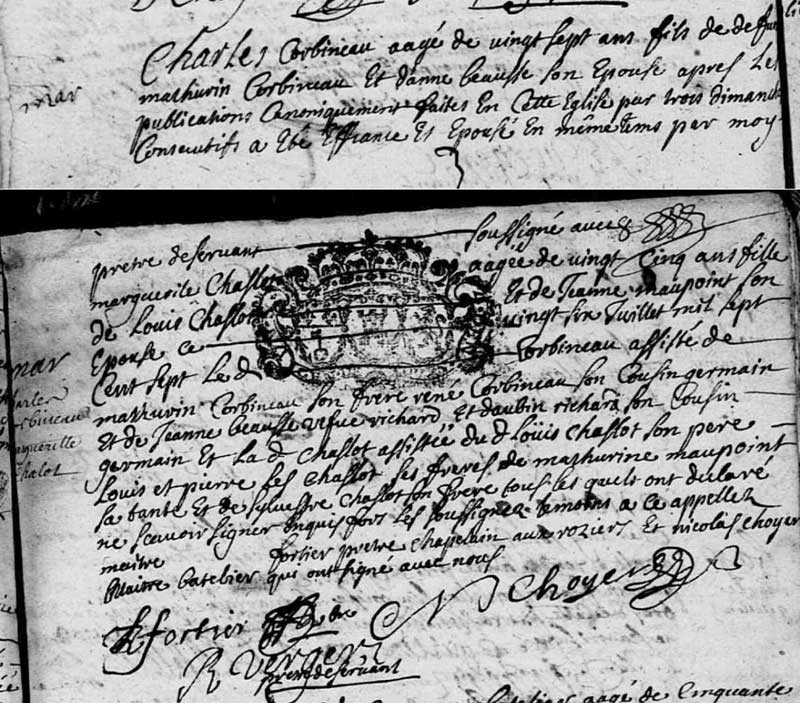 mar
Charles Corbineau aagé de vingt sept ans fils de defu
mathurin Corbineau Et danne beausse son Epouse apres Les
publications Canoniquement faites En Cette Eglise par trois dimanch
Consecutifs a Eté Effiancé Et Epousé En même tems par moy
pretre deservant soussigné avec
marguerite Chaslot aagée de vingt Cinq ans fille
de Louis Chaslot Et de Jeanne maupoint son
Epouse ce vingt six Juillet mil sept
Cent sept Le d Corbineau assisté de
mathurin Corbineau son frere rené Corbineau son Cousin germain
Et de Jeanne beausse vefue richard Et daubin richard son Cousin
germain Et La d Chaslot assistée du d Loüis Chaslot son pere
Louis et pierre Les Chaslot ses freres de mathurine maupoint
sa tante Et de sylvestre Chaslot son frere tous lesquels ont declaré
ne scavoir signer Enquis fors Les soussignez temoins a ce appellez
maitre fortier pretre chapelain aux roziers Et nicolas Choyer
Maitre batelier qui ont signé avec nous
mar
Charles
Corbineau
marguerille
Chalot
fortier
N Choyer
R Verger
pretre deservant
batelier aagé de Cinquante